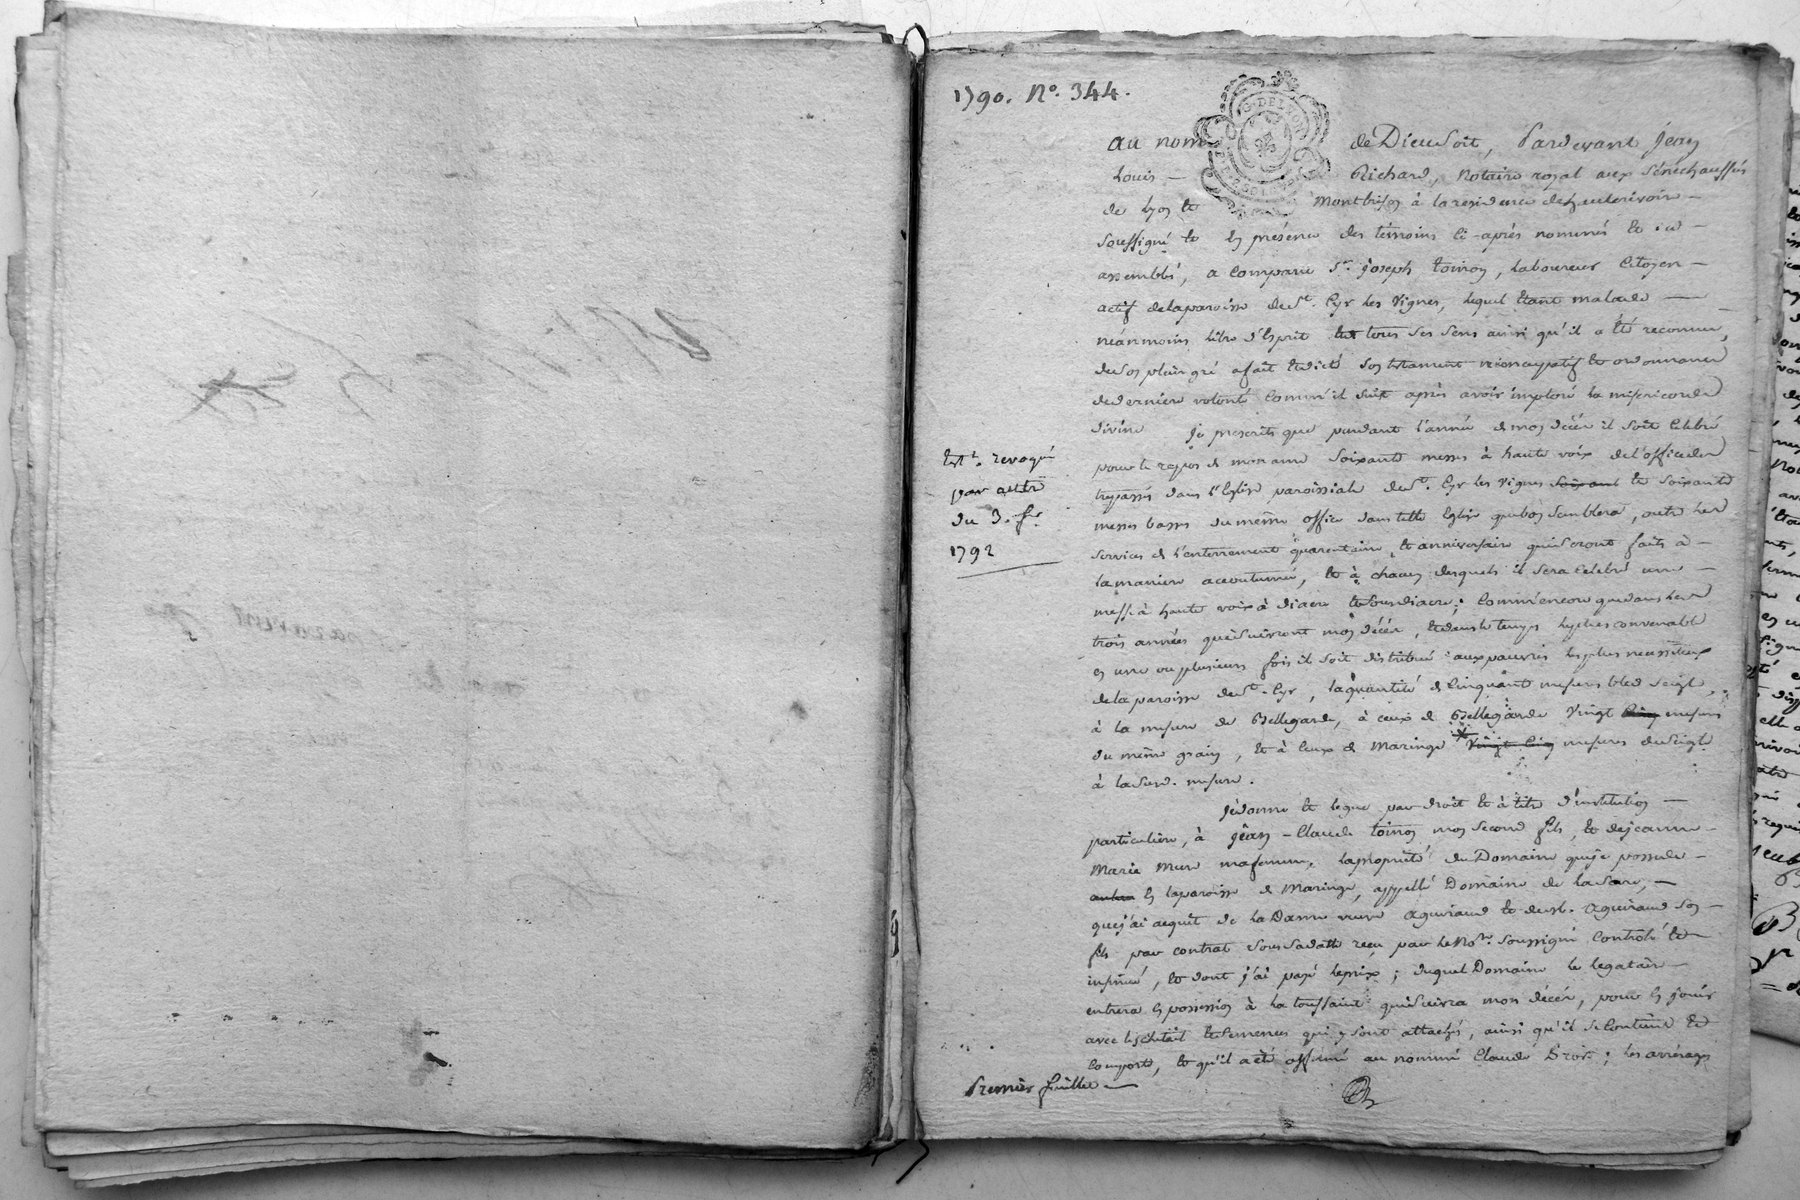 1790. N°. 344.
G. DE LYON
au nom de Dieu soit, Pardevant Jean
Louis - Richard, Notaire royal aux Sénéchaussées
de Lyon et Montbrison à la residence de
soussigné et en présence des témoins ci-après nommés et
assemblés, a comparu Sr. joseph toinon, laboureur Citoyen
actif de la paroisse de St. Cyr les Vignes, lequel étant malade
néanmoins libre d'Esprit et tous ses sens ainsi qu'il a été reconnu,
de son plein gré a fait et dicté son testament nuncupatif et ordonnance
de derniere volonté comm'il suit après avoir imploré la misericorde
divine je prescrits que pendant l'année de mon décèz il soit Célébré
pour le repos de mon ame soixante messes à haute voix de l'office des
trepassés dans l'Eglise paroissiale de St. Cyr les Vignes et soixante
messes basses du même office dans telle Eglise que bon semblera, outre les
services de l'enterrement quarantaine, et anniversaire qui seront faits à
la maniere accoutumée, et à chacun desquels il sera célébré une
messe à haute voix à diacre et sousdiacre; comm'encore que dans les
trois années qui suivront mon décèz, et dans le temps le plus convenable
en une ou plusieurs fois il soit distribué aux pauvres les plus necessiteux
de la paroisse de St. Cyr, la quantité de Cinquante mesures bled seigle,
à la mesure de Bellegarde, à ceux de Bellegarde vingt mesures
du même grain, et à ceux de Maringe mesures de seigle
à la susd. mesure.
testt. revoqué
par autre
du 3. fr.
1792
je donne et legue par droit et à titre d'institution
particuliere, à jean-Claude toinon mon second fils, et de jeanne
Marie Mure ma femme, la proprieté du Domaine que je possede
en la paroisse de Maringe, appellé Domaine de
que j'ai acquit de la Dame veuve aguiraud et de sr. aguiraud son
fils par contrat sous sa datte reçu par le Nore. soussigné controlé et
insinué, et dont j'ai payé le prix; duquel Domaine le legataire
entrera en possession à la toussaint qui suivra mon décèz, pour en jouir
avec les cheptail et semences qui y sont attachés, ainsi qu'il se contient et
comporte, et qu'il a été affermé au nommé Claude; les arrérages
Premier feuillet